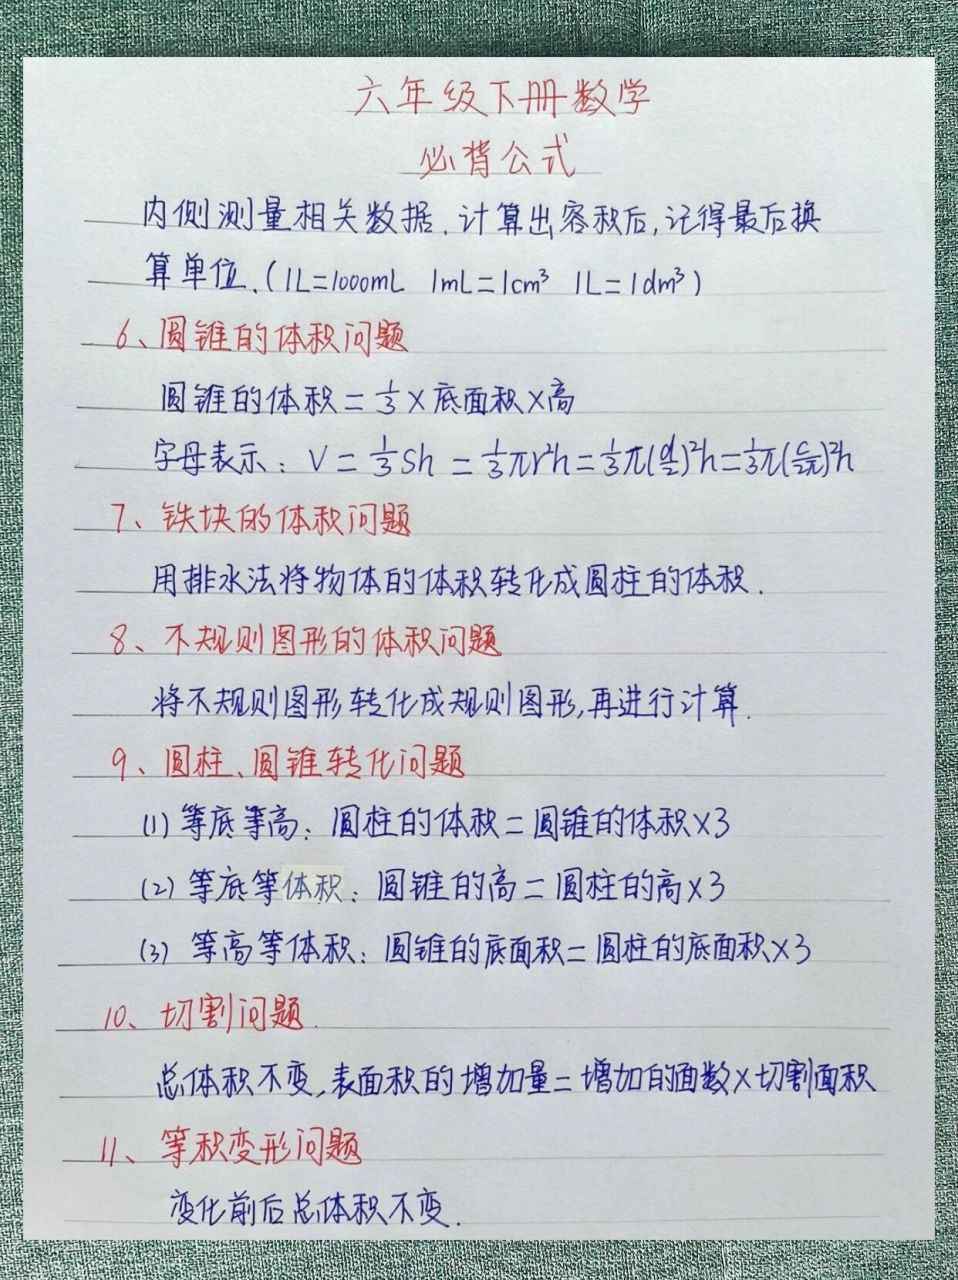 六年级下册数学
必背公式
内侧测量相关数据.计算出容积后,记得最后换
算单位.(1L=1000mL 1mL=1cm³ 1L=1dm³)
6、圆锥的体积问题
圆锥的体积=1/3×底面积×高
字母表示:V=1/3Sh=1/3πr²h=1/3π(d/2)²h=1/3π(C/2π)²h
7、铁块的体积问题
用排水法将物体的体积转化成圆柱的体积.
8、不规则图形的体积问题
将不规则图形转化成规则图形,再进行计算.
9、圆柱、圆锥转化问题
(1)等底等高:圆柱的体积=圆锥的体积×3
(2)等底等体积:圆锥的高=圆柱的高×3
(3)等高等体积:圆锥的底面积=圆柱的底面积×3
10、切割问题.
总体积不变,表面积的增加量=增加的面数×切割面积
11、等积变形问题
变化前后总体积不变.